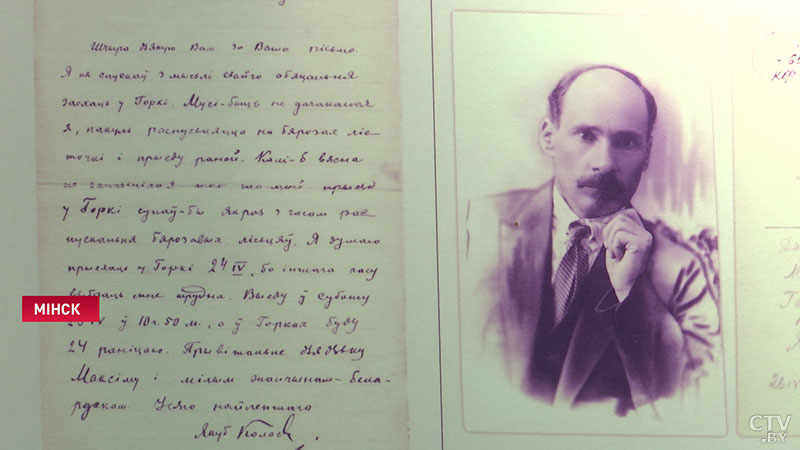 Шчыра дзякую Вам за Ваша пісьмо.
Я ня спускаў з мыслі свайго абяцаньня
заехаць у Горкі. Мусі-быць не дачакаюся
я, пакуль распусьцяцца на бярозах ліс-
точкі і прыеду раней. Калі-б вясна
мой прыезд
у Горкі супаў-бы якраз з часам рас-
пусканьня бярозавых лісьцяў. Я думаю
прыехаць у Горкі 24 IV, бо іншага часу
выбраць мне трудна. Выеду ў суботу
ў 10 г. 50 м., а ў Горках буду
24 раніцаю. Прывітаньне дзядзьку
Максіму і мілым
Усяго найлепшага
Якуб Колас.
МІНСК
26 IV
CTV
.BY